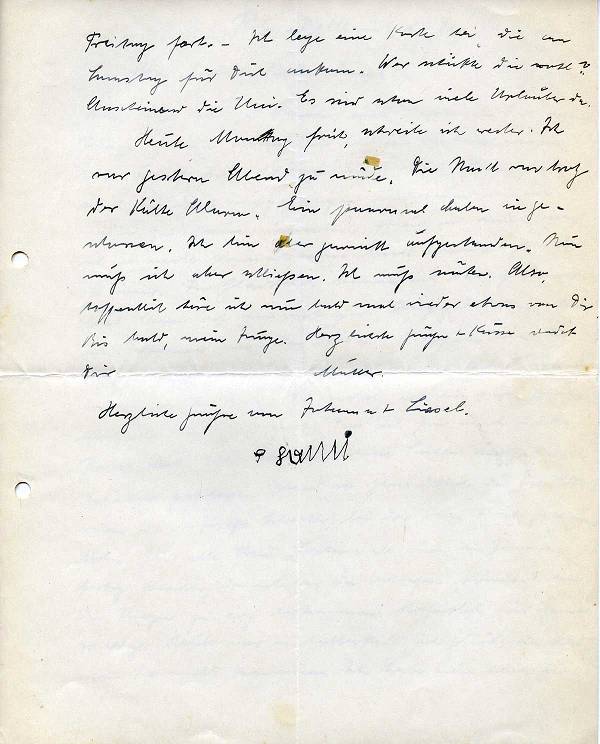 Freitag fort. – Ich lege eine Karte bei, die am
Samstag für Dich ankam. Wer schickte die wohl?
Anscheinend die Uni. Es sind schon viele Urlauber da.
Heute Montag früh, schreibe ich weiter. Ich
war gestern Abend zu müde. Die Nacht war trotz
der Kälte Alarm. Ein paarmal haben sie ge-
schossen. Ich bin aber nicht aufgestanden. Nun
muß ich aber schließen. Ich muß nähen. Also,
hoffentlich höre ich nun bald mal wieder etwas von Dir.
Bis bald, mein Junge. Herzliche Grüße + Küsse sendet
Dir Mutter.
Herzliche Grüße von + Liesel.